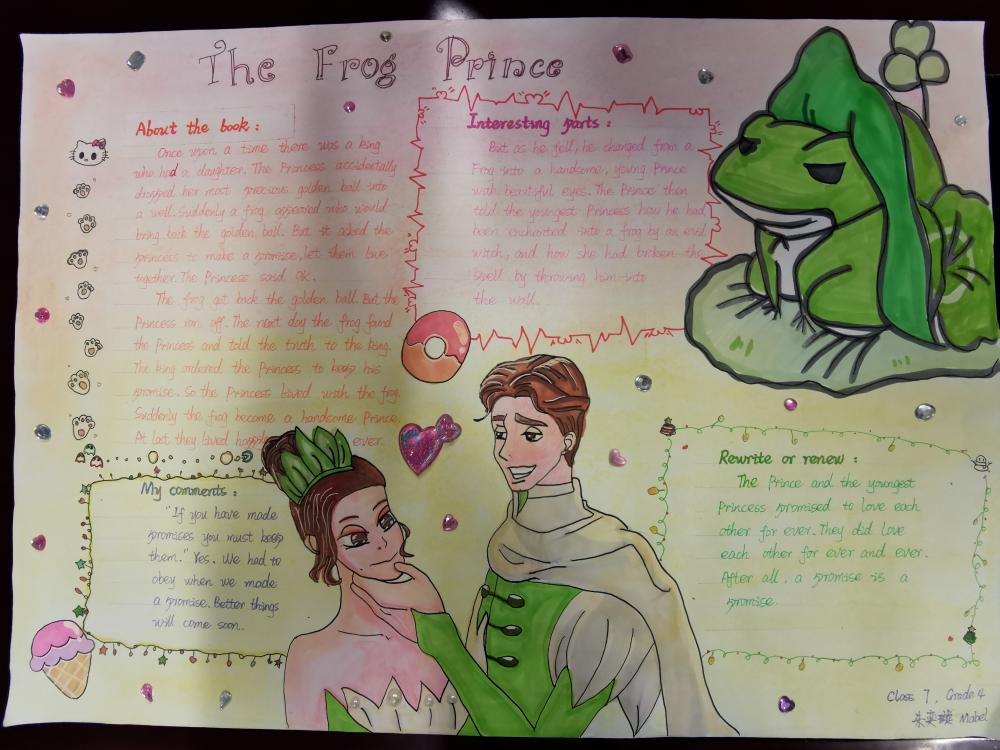 The Frog Prince
About the book :
Once upon a time there was a king
who had a daughter. The Princess accidentally
dropped her most precious golden ball into
a well. Suddenly a frog appeared who would
bring back the golden ball. But it asked the
princess to make a promise, let them live
together. The Princess said OK.
The frog got back the golden ball. But the
Princess ran off. The next day the frog found
the Princess and told the truth to the king.
The king ordered the Princess to keep his
promise. So the Princess lived with the frog.
Suddenly the frog become a handsome Prince.
At last they lived ever.
Interesting parts :
But as he fell, he changed from a
Frog into a handsome, young Prince
with beautiful eyes. The Prince then
told the youngest Princess how he had
been enchanted into a frog by an evil
witch, and how she had broken the
spell by throwing him into
the wall.
My comments :
"If you have made
promises you must keep
them." Yes. We had to
obey when we made
a promise. Better things
will come soon.
Rewrite or renew :
The Prince and the youngest
Princess promised to love each
other for ever. They did love
each other for ever and ever.
After all, a promise is a
promise.
Class 7, Grade 4
朱奕 Mabel